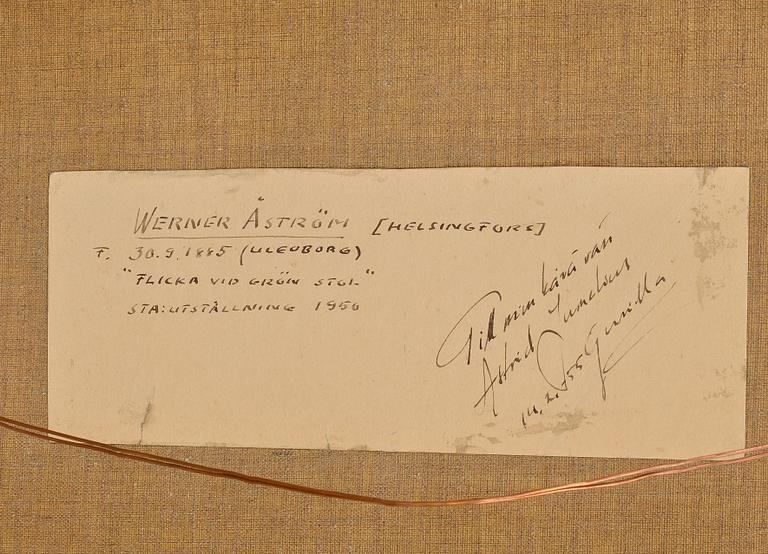 WERNER ÅSTRÖM [HELSINGFORS]
F. 30.9.1885 (ULEÅBORG)
"FLICKA VID GRÖN STOL"
STA:UTSTÄLLNING 1950
Till min kära vän
Astrid Sumelius
14.2.55 Gunilla